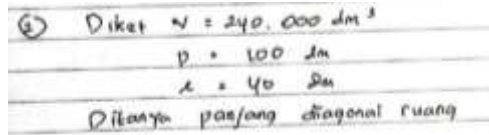 ② Diket V = 240.000 dm³
p = 100 dm
l = 40 dm
Ditanya panjang diagonal ruang